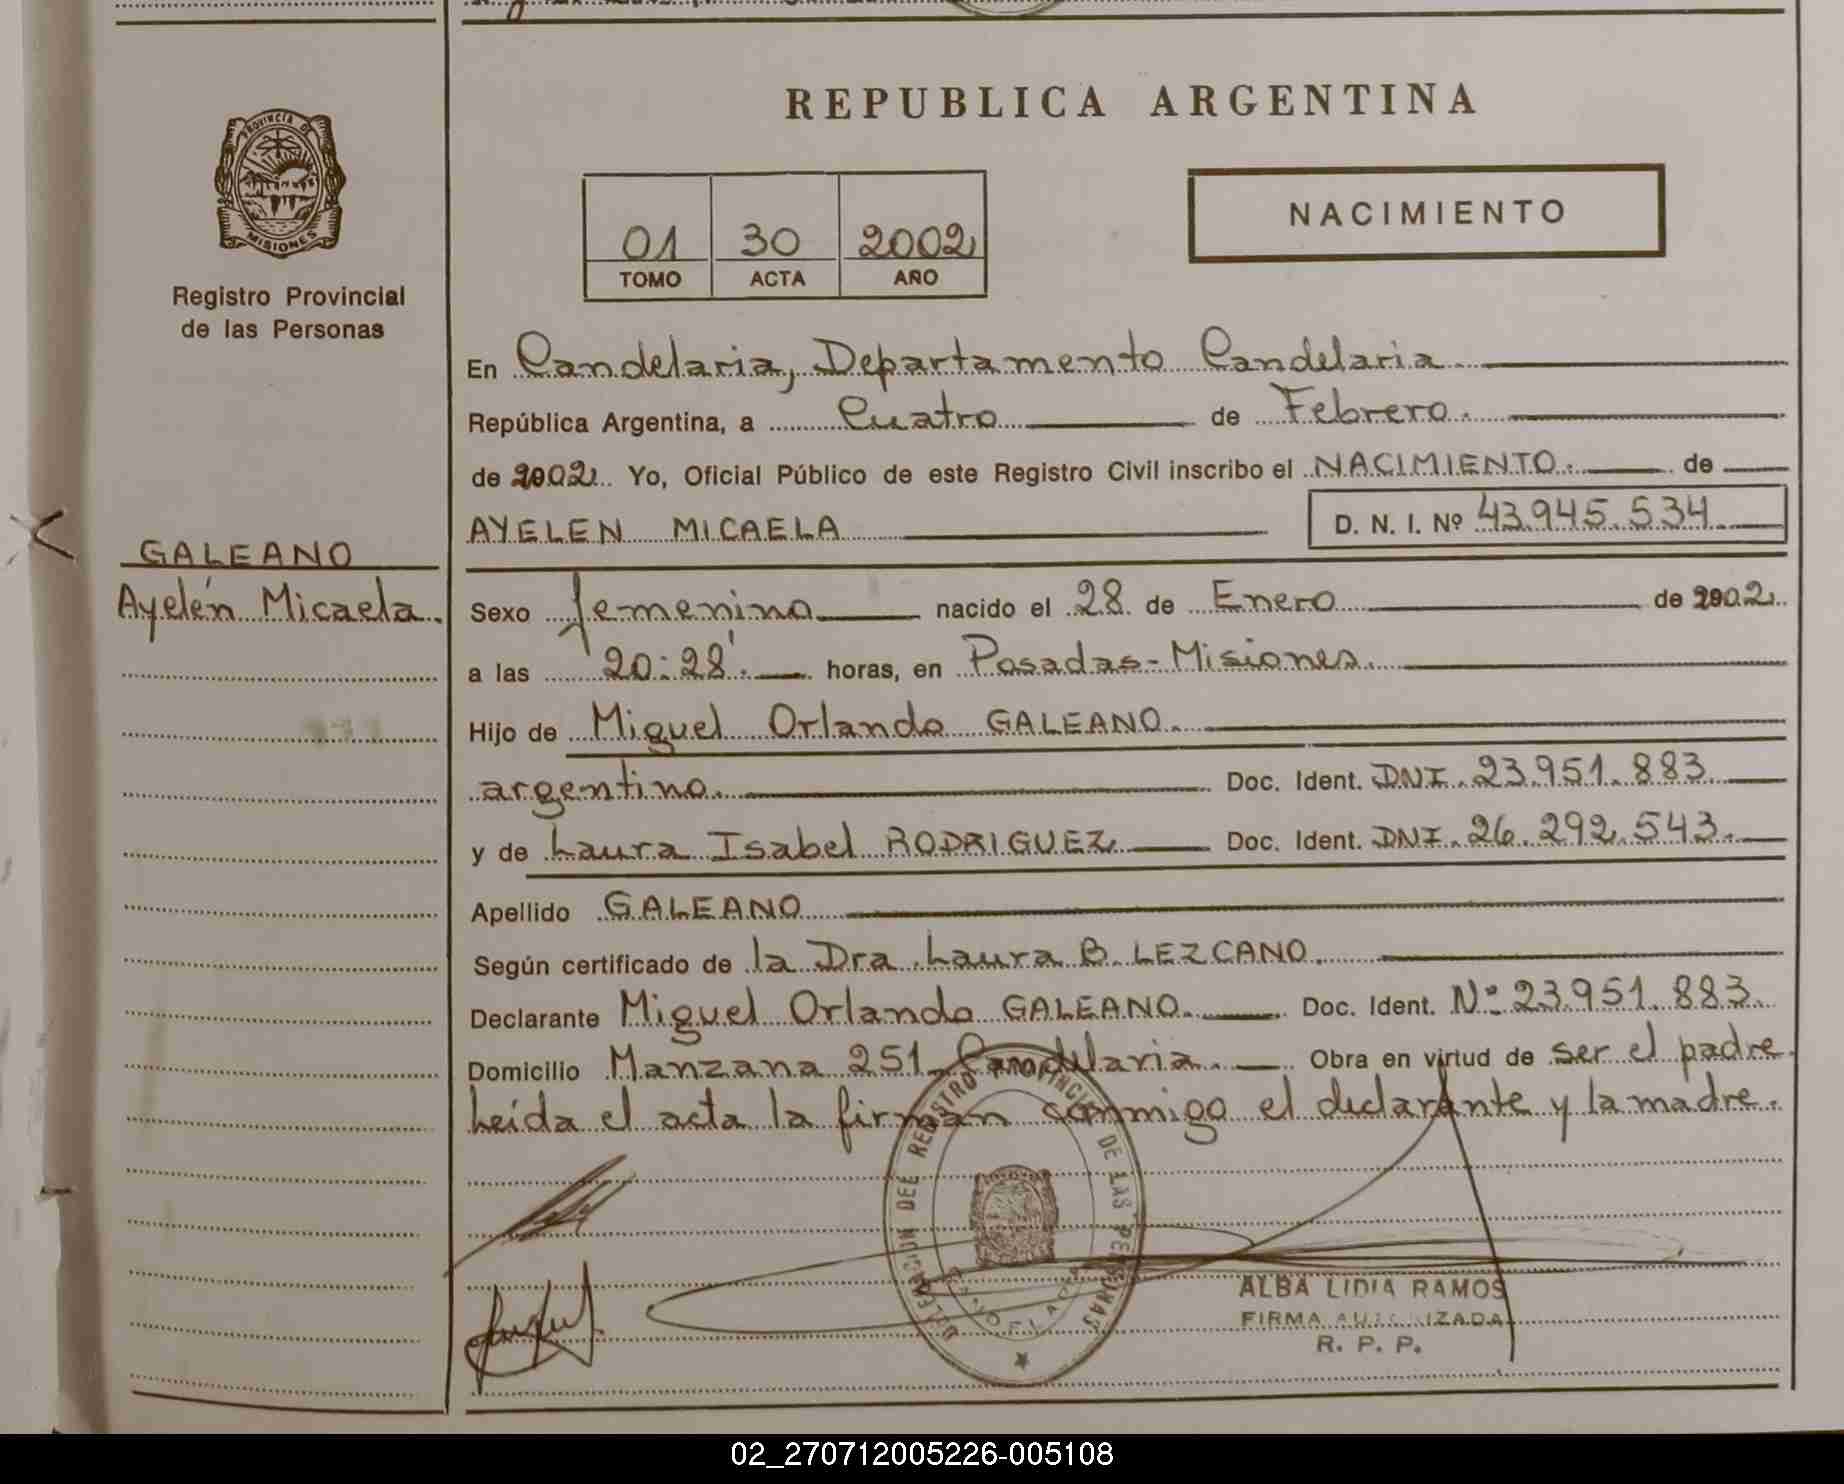 REPUBLICA ARGENTINA
PROVINCIA DE
MISIONES
Registro Provincial
de las Personas
NACIMIENTO
01 30 2002
TOMO ACTA AÑO
En Candelaria, Departamento Candelaria
República Argentina, a Cuatro de Febrero.
de 2002. Yo, Oficial Público de este Registro Civil inscribo el NACIMIENTO. de
AYELEN MICAELA D. N. I. Nº 43.945.534
GALEANO
Ayelén Micaela.
Sexo femenino nacido el 28 de Enero de 2002.
a las 20:28'. horas, en Posadas-Misiones.
Hijo de Miguel Orlando GALEANO.
argentino. Doc. Ident. DNI. 23.951.883
y de Laura Isabel RODRIGUEZ Doc. Ident. DNI. 26.292.543.
Apellido GALEANO
Según certificado de la Dra. Laura B. LEZCANO.
Declarante Miguel Orlando GALEANO. Doc. Ident. Nº 23.951.883.
Domicilio Manzana 251 Candelaria. Obra en virtud de ser el padre.
Leída el acta la firman conmigo el declarante y la madre.
DELEGACION DEL REGISTRO PROVINCIAL DE LAS PERSONAS
ALBA LIDIA RAMOS
FIRMA AUTORIZADA
R. P. P.
02_270712005226-005108